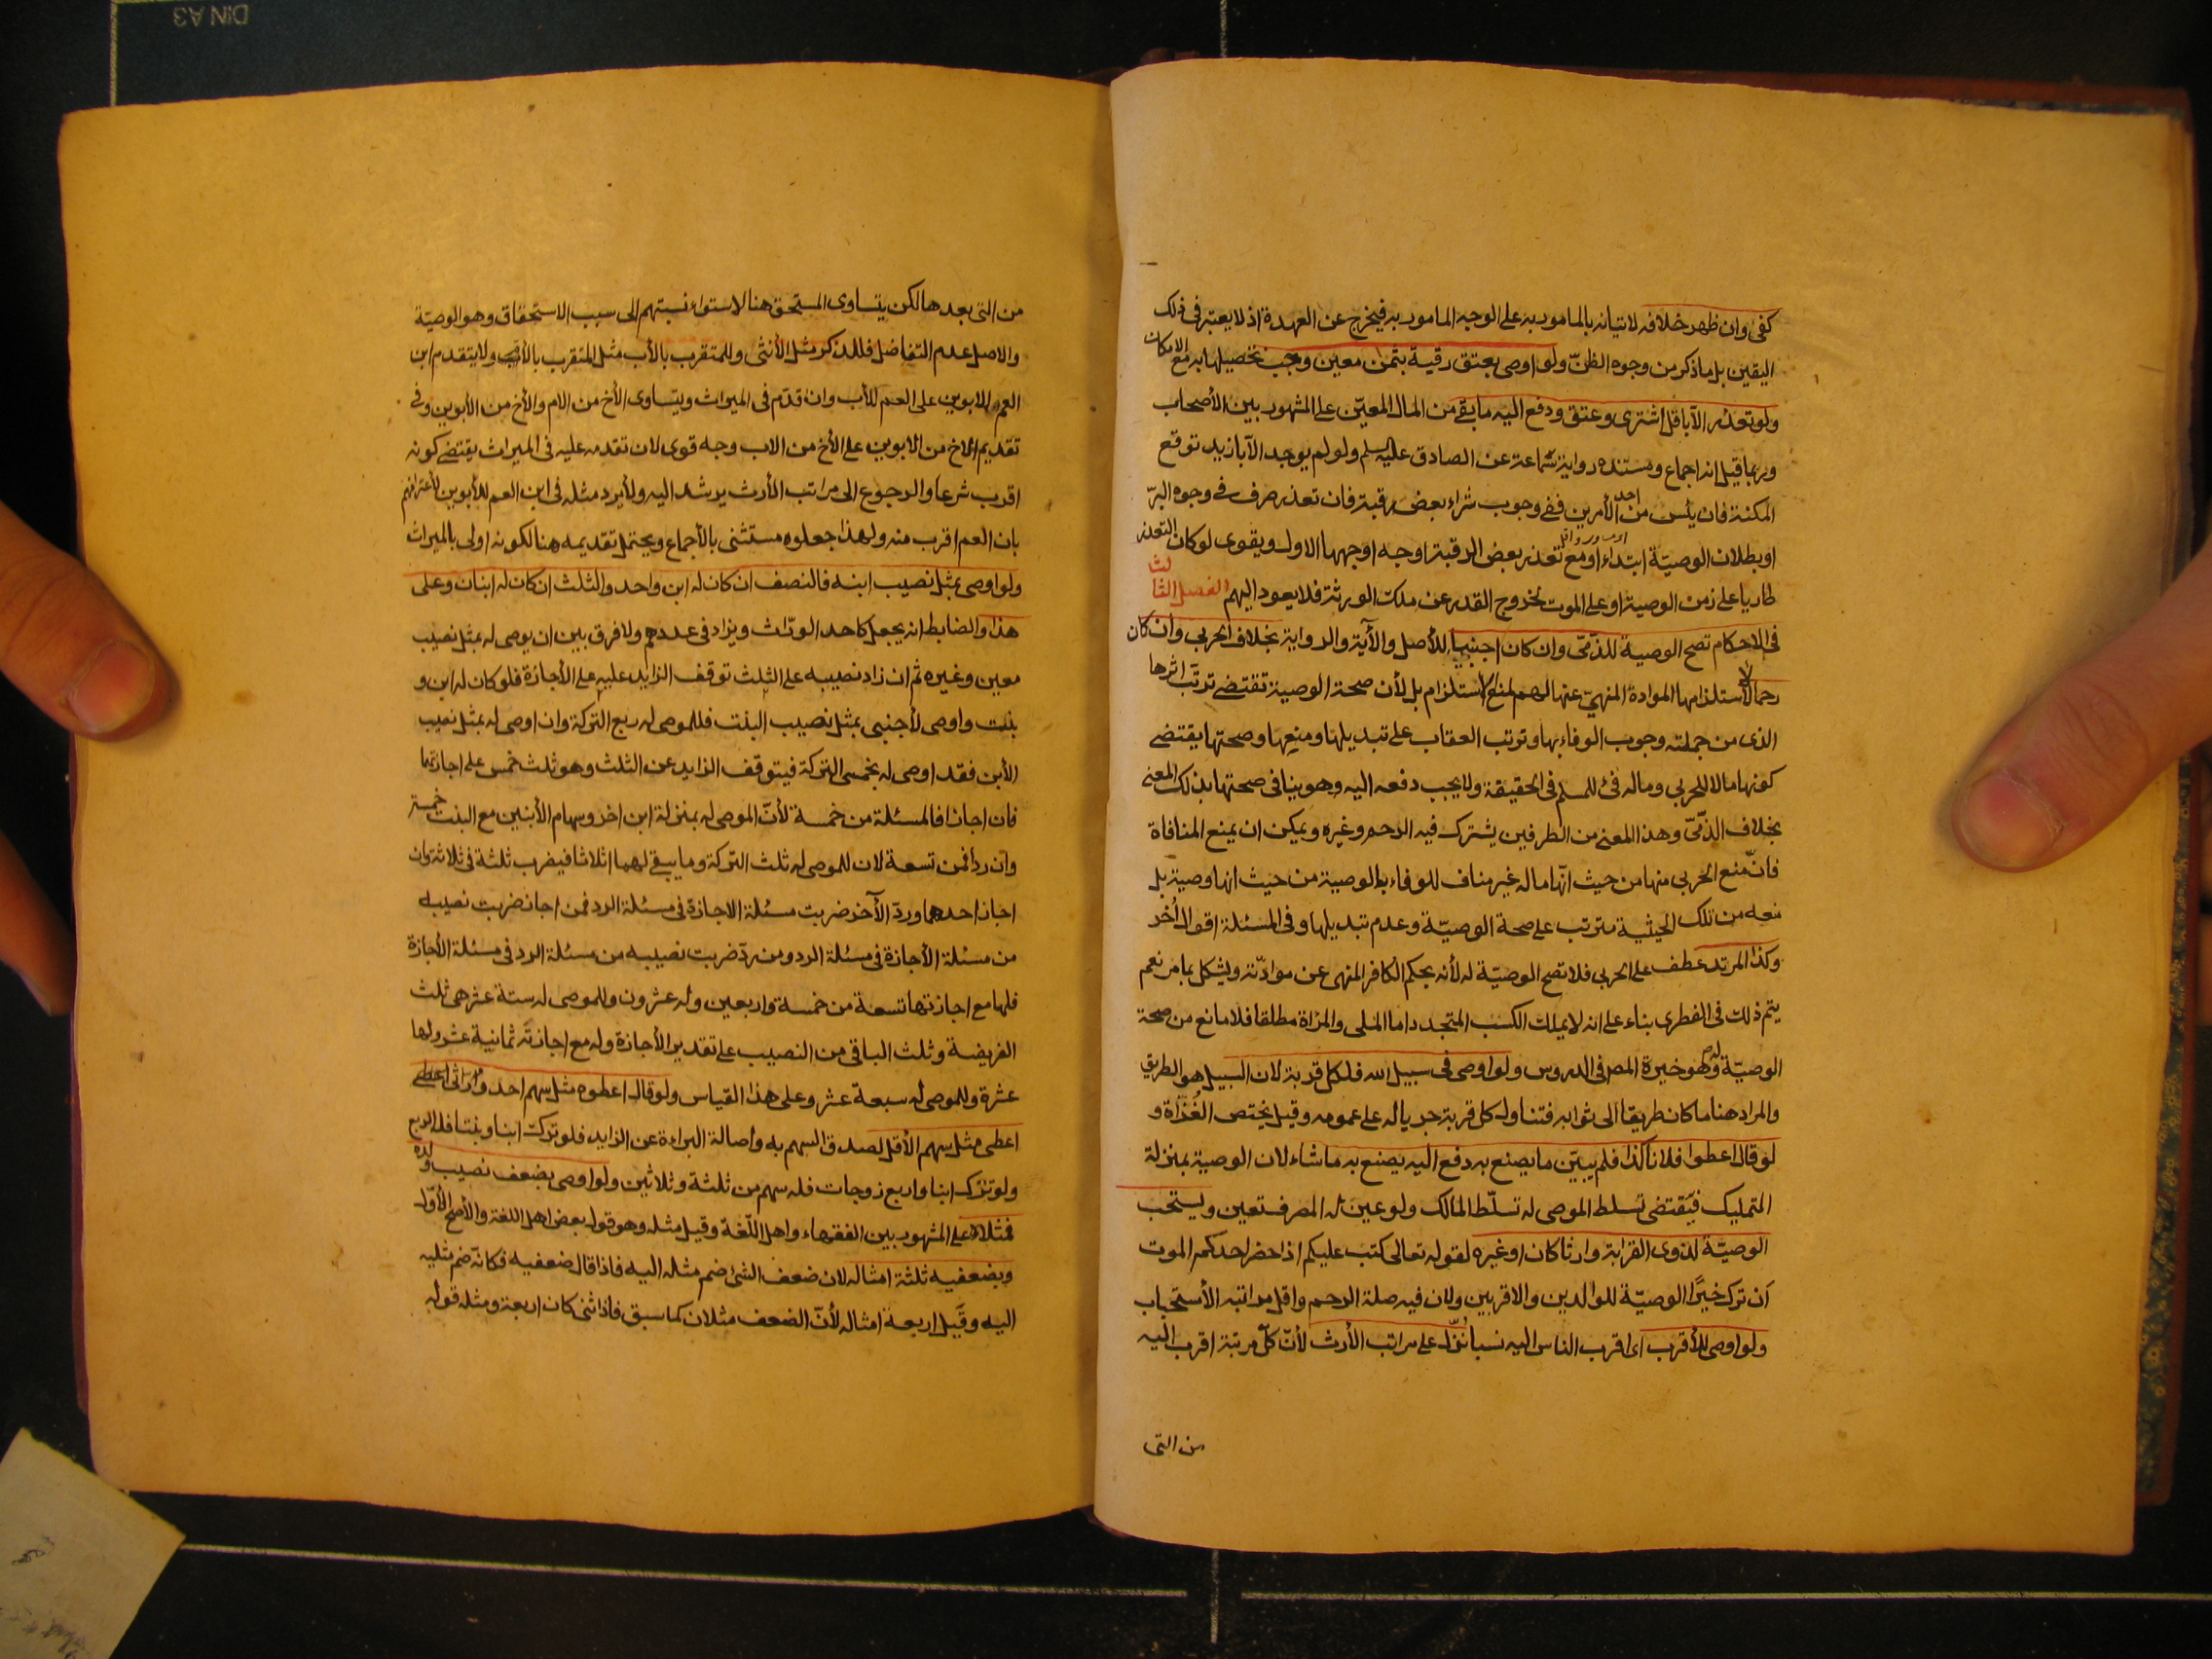 كفى وان ظهر خلافه لاتيانه بالمامور به على الوجه المامور به فيخرج عن العهدة اذ لا يعتبر في ذلك
اليقين بل ما ذكر من وجوه الظنّ ولو اوصى بعتق رقبة بثمن معين وجب تحصيلها به مع الامكان
ولو تعذر الا باقل اشترى وعتق ودفع اليه ما بقي من المال المعيّن على المشهور بين الأصحاب
وربما قيل انه اجماع ومستنده رواية سماعة عن الصادق عليه السلم ولو لم يوجد الا بازيد توقع
المكنة فان يئس من احد الأمرين ففي وجوب شراء بعض رقبة فان تعذر صرف في وجوه البرّ
او بطلان الوصيّة ابتداء او مع تعذر بعض الرقبة اوجه اوجهها الاول ويقوى لو كان التعذر
طاريا على زمن الوصية او على الموت لخروج القدر عن ملك الورثة فلا يعود اليهم الفصل الثالث
في الاحكام تصح الوصية للذمّى وان كان اجنبيا للأصل والآية والرواية بخلاف الحربي وان كان
رحما لا لأستلزامها الموادة المنهيّ عنها لهم لمنع الاستلزام بل لأن صحة الوصية تقتضي ترتّب اثرها
الذى من جملته وجوب الوفاء بها وترتب العقاب على تبديلها ومنعها وصحتها يقتضي
كونها مالا للحربي وماله فئ للمسلم في الحقيقة ولا يجب دفعه اليه وهو ينافى صحتها بذلك المعنى
بخلاف الذمّىّ وهذا المعنى من الطرفين يشترك فيه الرحم وغيره ويمكن ان يمنع المنافاة
فانّ منع الحربي منها من حيث انّها ماله غير مناف للوفاء بالوصية من حيث انها وصية بل
منعه من تلك الحيثية مترتب على صحة الوصيّة وعدم تبديلها وفى المسئلة اقوال أُخر
وكذا المرتد عطف على الحربي فلا تصح الوصيّة له لأنه بحكم الكافر المنهى عن موادّته ويشكل بما مر نعم
يتم ذلك في الفطرى بناء على انه لا يملك الكسب المتجدد اما الملى والمراة مطلقا فلا مانع من صحة
الوصيّة له وهو خيرة المص في الدروس ولو اوصى في سبيل الله فلكل قربة لان السبيل هو الطريق
والمراد هنا ما كان طريقا الى ثوابه فتناول كل قربة جريا له على عمومه وقيل يختص الغُزاة و
لو قال اعطوا فلانا كذا فلم يبيّن ما يصنع به دفع اليه يصنع به ما شاء لان الوصية بمنزلة
التمليك فيقتضى تسلط الموصى له تسلّط المالك ولو عين له المصرف تعين ويستحب
الوصيّة لذوى القرابة وارثا كان او غيره لقوله تعالى كتب عليكم اذا حضر احدكم الموت
ان ترك خيرًا الوصيّة للوالدين والاقربين ولان فيه صلة الرحم واقل مراتبه الأستحباب
ولو اوصى للأقرب اى اقرب الناس اليه نسبا نُزّل على مراتب الأرث لأنّ كلّ مرتبة اقرب اليه
من التى
من التى بعدها لكن يتساوى المستحق هنا لاستواء نسبتهم الى سبب الاستحقاق وهو الوصيّة
والاصل عدم التفاضل فللذكر مثل الأنثى وللمتقرب بالأب مثل المتقرب بالأم ولا يتقدم ابن
العم للابوين على العم للأب وان قدّم في الميراث ويتساوى الأخ من الام والأخ من الأبوين وفي
تقديم الاخ من الابوين على الأخ من الاب وجه قوى لان تقدمه عليه في الميراث يقتضي كونه
اقرب شرعا والرجوع الى مراتب الأرث يرشد اليه ولا يرد مثله في ابن العم للأبوين لأعترافهم
بان العم اقرب منه ولهذا جعلوه مستثنى بالأجماع ويحتمل تقديمه هنا لكونه اولى بالميراث
ولو اوصى بمثل نصيب ابنه فالنصف ان كان له ابن واحد والثلث ان كان له ابنان وعلى
هذا والضابط انه يجعل كاحد الورّاث ويزاد في عددهم ولا فرق بين ان يوصى له بمثل نصيب
معين وغيره ثم ان زاد نصيبه على الثلث توقف الزايد عليه على الأجازة فلو كان له ابن و
بنت واوصى لأجنبى بمثل نصيب البنت فللموصى له ربع التركة وان اوصى له بمثل نصيب
الأبن فقد اوصى له بخمسى التركة فيتوقف الزايد عن الثلث وهو ثلث خمس على اجازتهما
فان اجازا فالمسئلة من خمسة لأنّ الموصى له بمنزلة ابن اخر وسهام الأبنين مع البنت خمسة
وان ردا فمن تسعة لان للموصى له ثلث التركة وما يبقي لهما اثلاثا فيضرب ثلثة في ثلاثة وان
اجاز احدهما وردّ الآخر ضربت مسئلة الاجازة في مسئلة الرد فمن اجاز ضربت نصيبه
من مسئلة الأجازة في مسئلة الرد ومن ردّ ضربت نصيبه من مسئلة الرد في مسئلة الأجازة
فلها مع اجازتها تسعة من خمسة واربعين وله عشرون وللموصى له ستة عشر هي ثلث
الفريضة وثلث الباقى من النصيب على تقدير الأجازة وله مع اجازته ثمانية عشر ولها
عشرة وللموصى له سبعة عشر وعلى هذا القياس ولو قال اعطوه مثل سهم احد ورّاثى اعطى
اعطى مثل سهم الأقل لصدق السهم به واصالة البراءة عن الزايد فلو ترك ابنا وبنتا فله الربع
ولو ترك ابنا واربع زوجات فله سهم من ثلثة وثلاثين ولو اوصى بضعف نصيب ولده
فمثلاه على المشهور بين الفقهاء واهل اللّغة وقيل مثله وهو قول بعض اهل اللغة والأصح الأوّل
وبضعفيه ثلثة امثاله لان ضعف الشئ ضم مثله اليه فاذا قال ضعفيه فكانّه ضم مثليه
اليه وقيل اربعة امثاله لأنّ الضعف مثلان كما سبق فاذا ثنى كان اربعة ومثله قوله